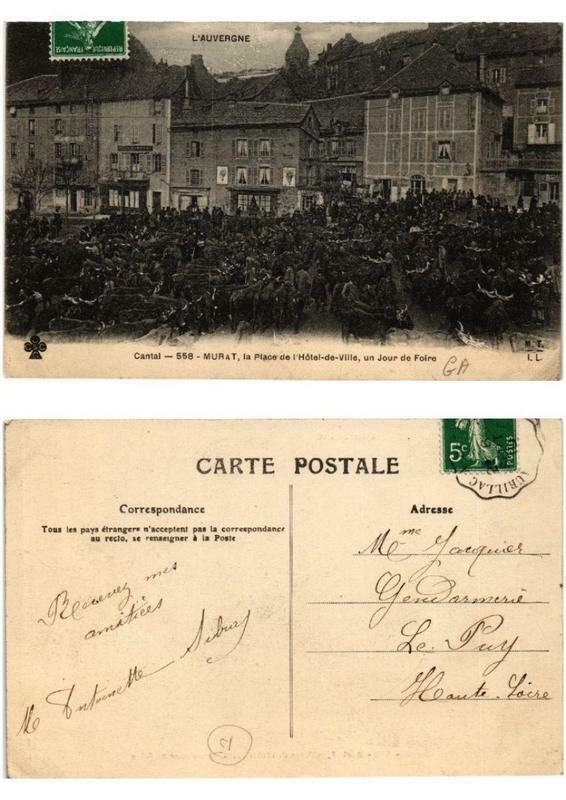 RÉPUBLIQUE FRANÇAISE
L'AUVERGNE
Cantal — 558 - MURAT, la Place de l'Hôtel-de-Ville, un Jour de Foire
M. T.
I. L.
GA
5c
POSTES
AURILLAC
CARTE POSTALE
Correspondance
Tous les pays étrangers n'acceptent pas la correspondance
au recto, se renseigner à la Poste
Recevez mes
amitiés
M Antoinette
Adresse
Mme Jacquier
Gendarmerie
Le Puy
Haute-Loire